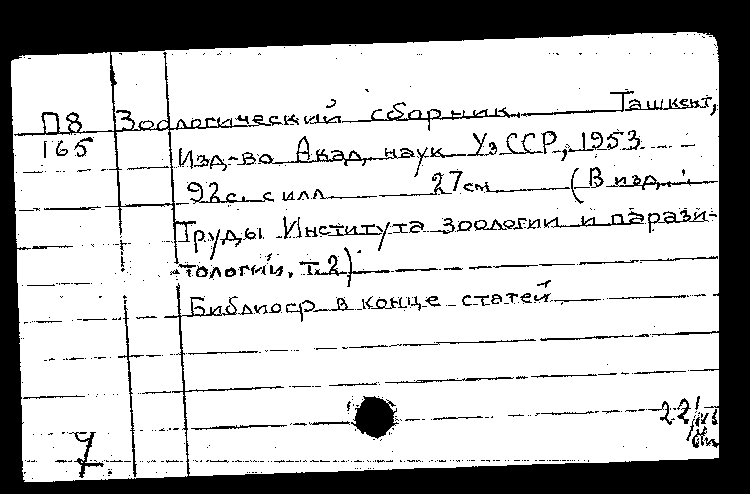 П8 Зоологический сборник. Ташкент,
165 Изд-во Акад. наук УзССР, 1953
92с. с илл 27см (В изд.:
Труды Института зоологии и парази-
тологии, т.2)
Библиогр в конце статей
7.
22/